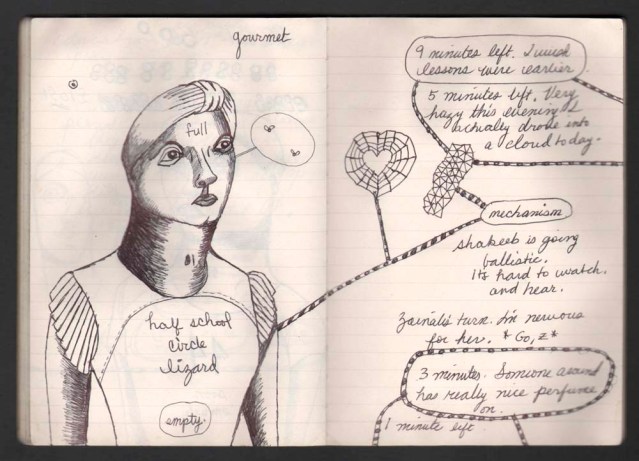 gourmet
full
#1
half school
circle
lizard
empty.
9 minutes left. I wish
lessons were earlier
5 minutes left. Very
hazy this evening. I
actually drove into
a cloud today.
mechanism
shakeeb is going
ballistic.
Its hard to watch.
and hear.
Zainali's turn. I'm nervous
for her. * Go, Z *
3 minutes. Someone around
has really nice perfume
on.
1 minute left